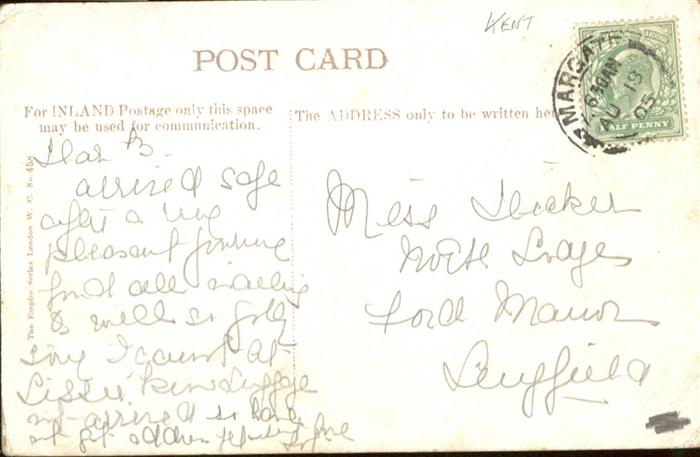 KENT
POST CARD
MARGATE
6.30 AM
18
05
HALF PENNY
For INLAND Postage only this space
may be used for communication.
The ADDRESS only to be written here
The Empire Series London W. C. No. 458
Dear B
arrived safe
after a very
pleasant journey
found all waiting
& well so jolly
sorry I cannot
Luggage
not arrived so have
not got address
Miss
North Lodges
Ford Manor
Lingfield